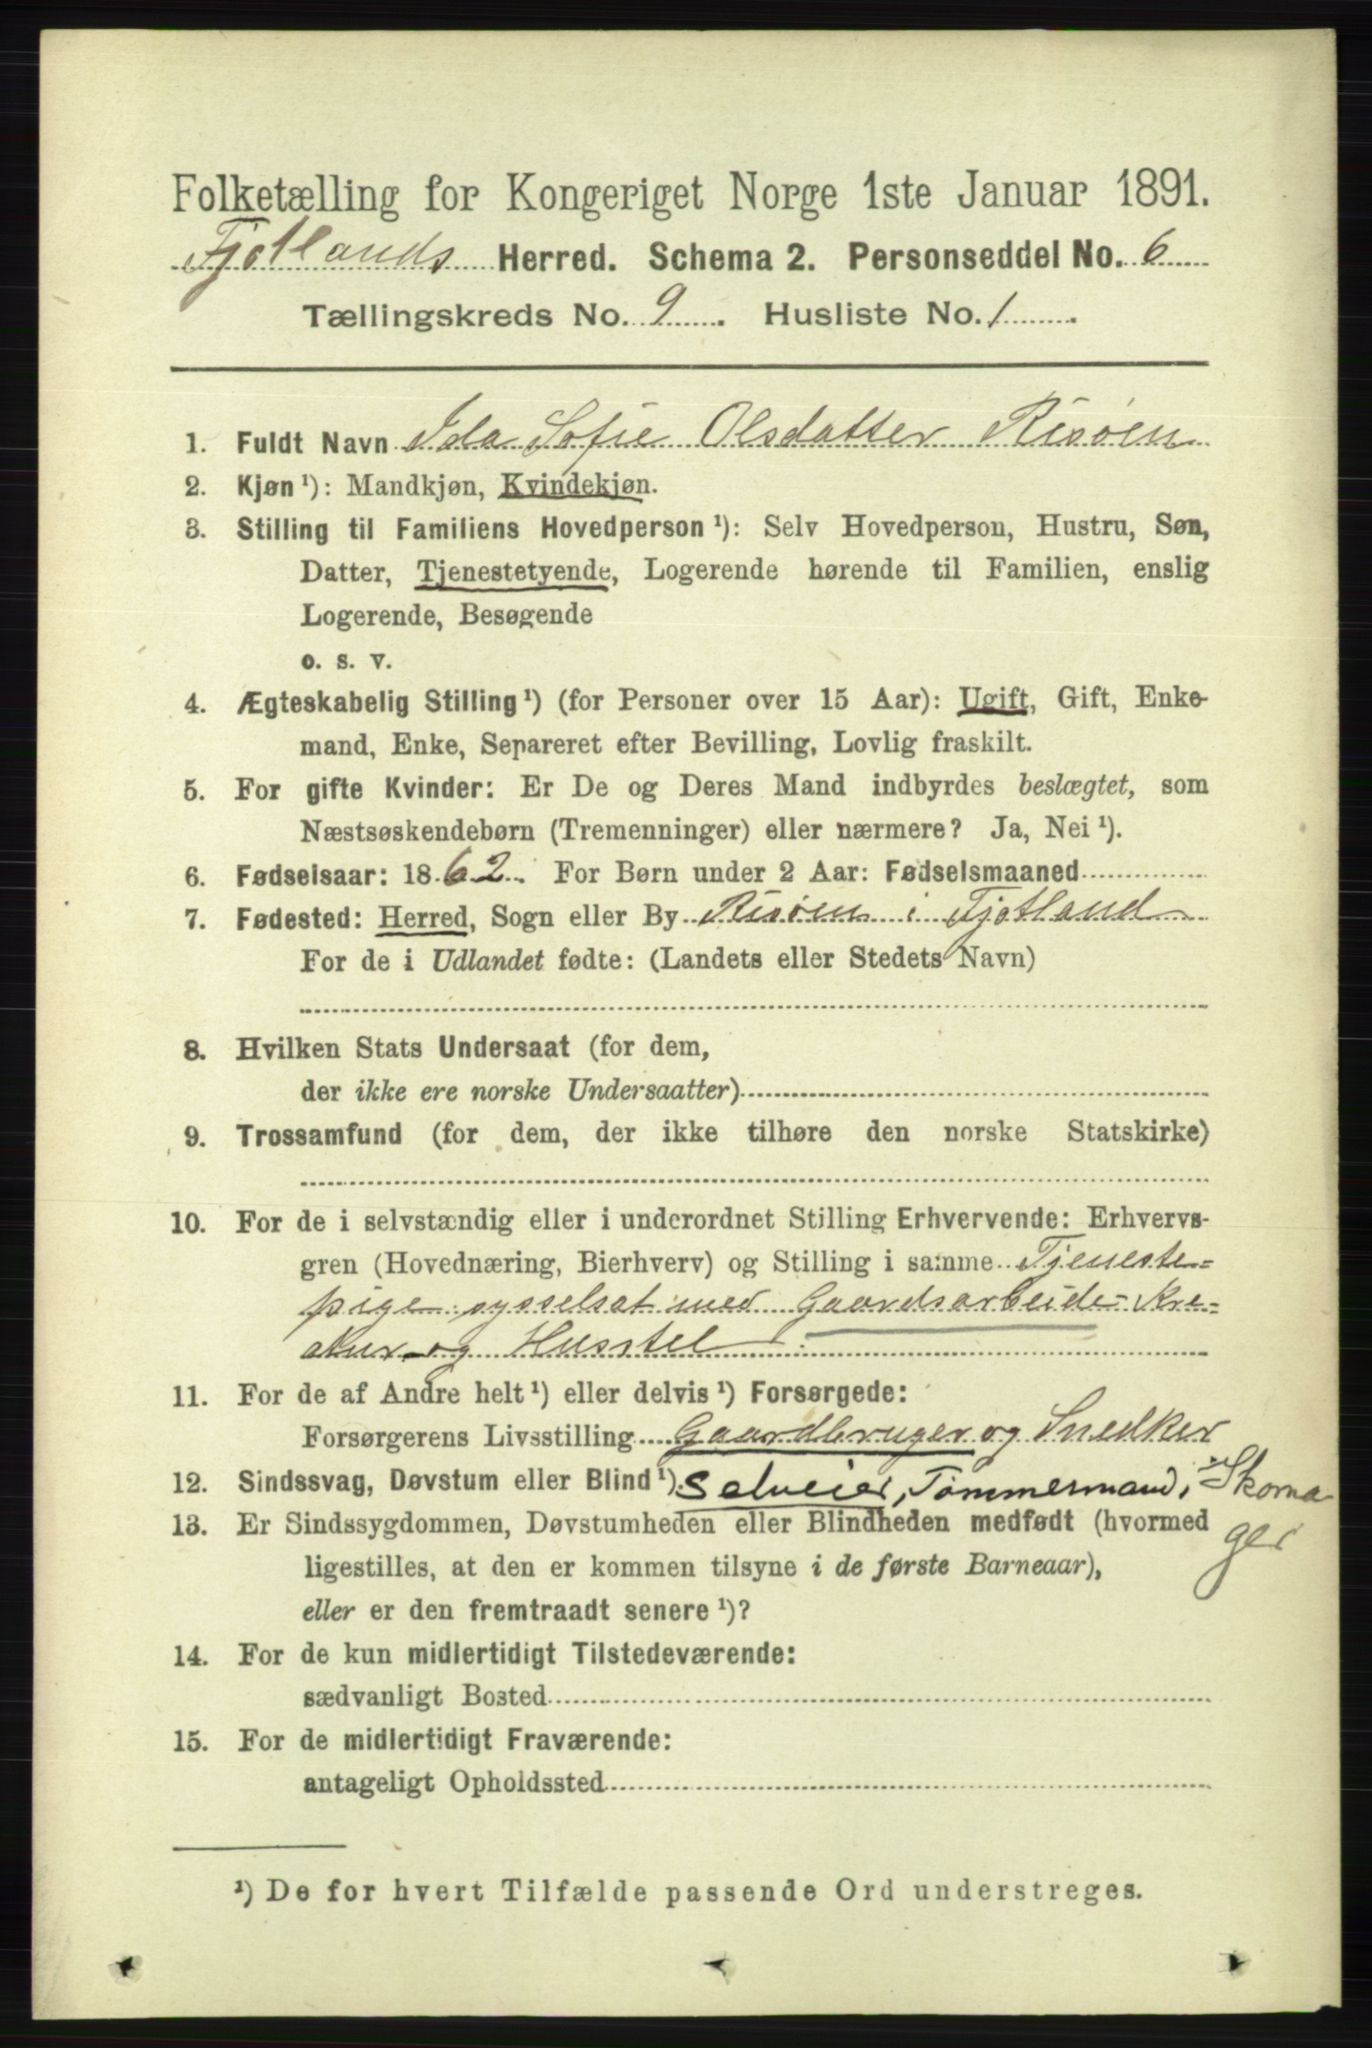 Folketælling for Kongeriget Norge 1ste Januar 1891.
Fjotlands Herred. Schema 2. Personseddel No. 6
Tællingskreds No. 9. Husliste No. 1.
1. Fuldt Navn Ida Sofie Olsdatter Risøen
2. Kjøn ¹): Mandkjøn, Kvindekjøn.
3. Stilling til Familiens Hovedperson ¹): Selv Hovedperson, Hustru, Søn,
Datter, Tjenestetyende, Logerende hørende til Familien, enslig
Logerende, Besøgende
o. s. v.
4. Ægteskabelig Stilling ¹) (for Personer over 15 Aar): Ugift, Gift, Enke-
mand, Enke, Separeret efter Bevilling, Lovlig fraskilt.
5. For gifte Kvinder: Er De og Deres Mand indbyrdes beslægtet, som
Næstsøskendebørn (Tremenninger) eller nærmere? Ja, Nei ¹).
6. Fødselsaar: 1862. For Børn under 2 Aar: Fødselsmaaned
7. Fødested: Herred, Sogn eller By Risøen i Fjotland
For de i Udlandet fødte: (Landets eller Stedets Navn)
8. Hvilken Stats Undersaat (for dem,
der ikke ere norske Undersaatter)
9. Trossamfund (for dem, der ikke tilhøre den norske Statskirke)
10. For de i selvstændig eller i underordnet Stilling Erhvervende: Erhvervs-
gren (Hovednæring, Bierhverv) og Stilling i samme Tjeneste-
pige sysselsat med Gaardsarbeide Kre-
atur og Husstel
11. For de af Andre helt ¹) eller delvis ¹) Forsørgede:
Forsørgerens Livsstilling Gaardbruger og Snedker
12. Sindssvag, Døvstum eller Blind ¹). Selveier, Tømmermand, Skoma
13. Er Sindssygdommen, Døvstumheden eller Blindheden medfødt (hvormed ger
ligestilles, at den er kommen tilsyne i de første Barneaar),
eller er den fremtraadt senere ¹)?
14. For de kun midlertidigt Tilstedeværende:
sædvanligt Bosted
15. For de midlertidigt Fraværende:
antageligt Opholdssted
¹) De for hvert Tilfælde passende Ord understreges.